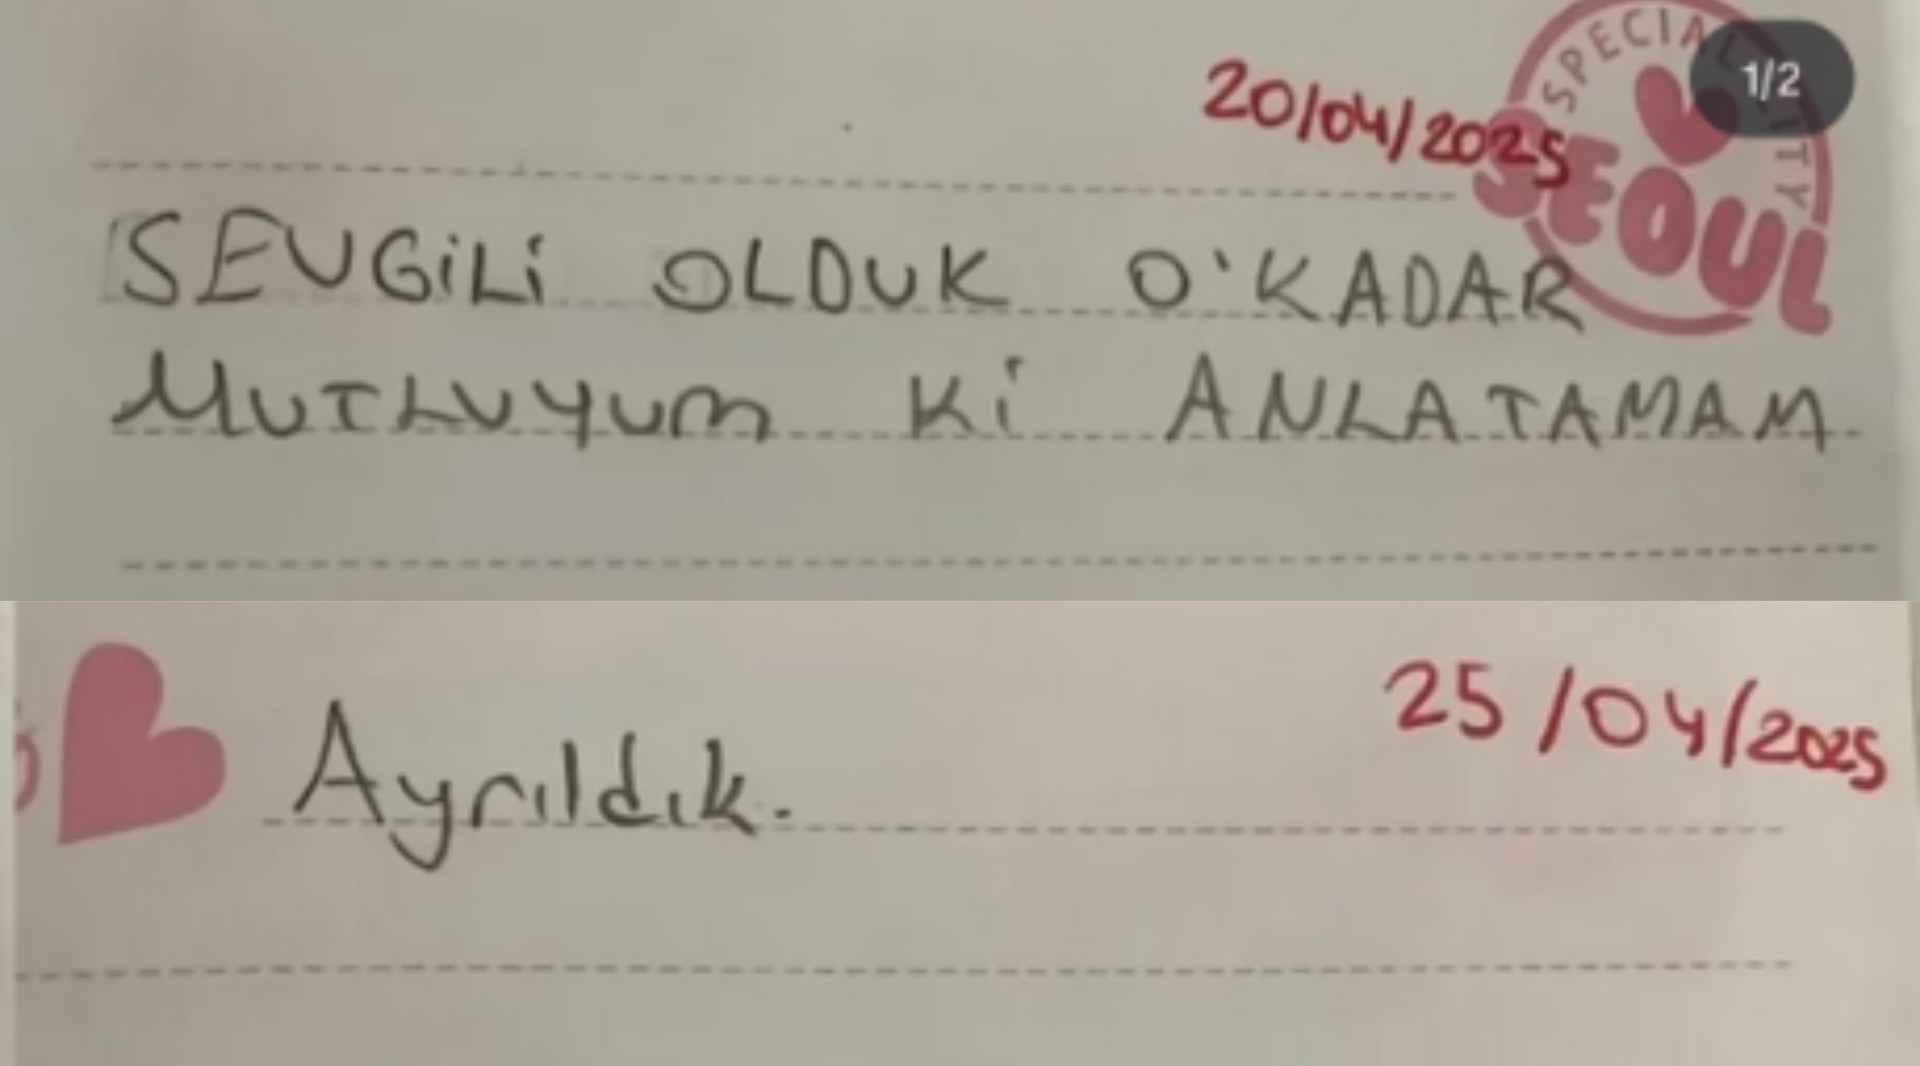 1/2
SPECIAL CITY
20/04/2025
SEOUL
SEVGİLİ OLDUK O'KADAR
MUTLUYUM Kİ ANLATAMAM
25/04/2025
Ayrıldık.